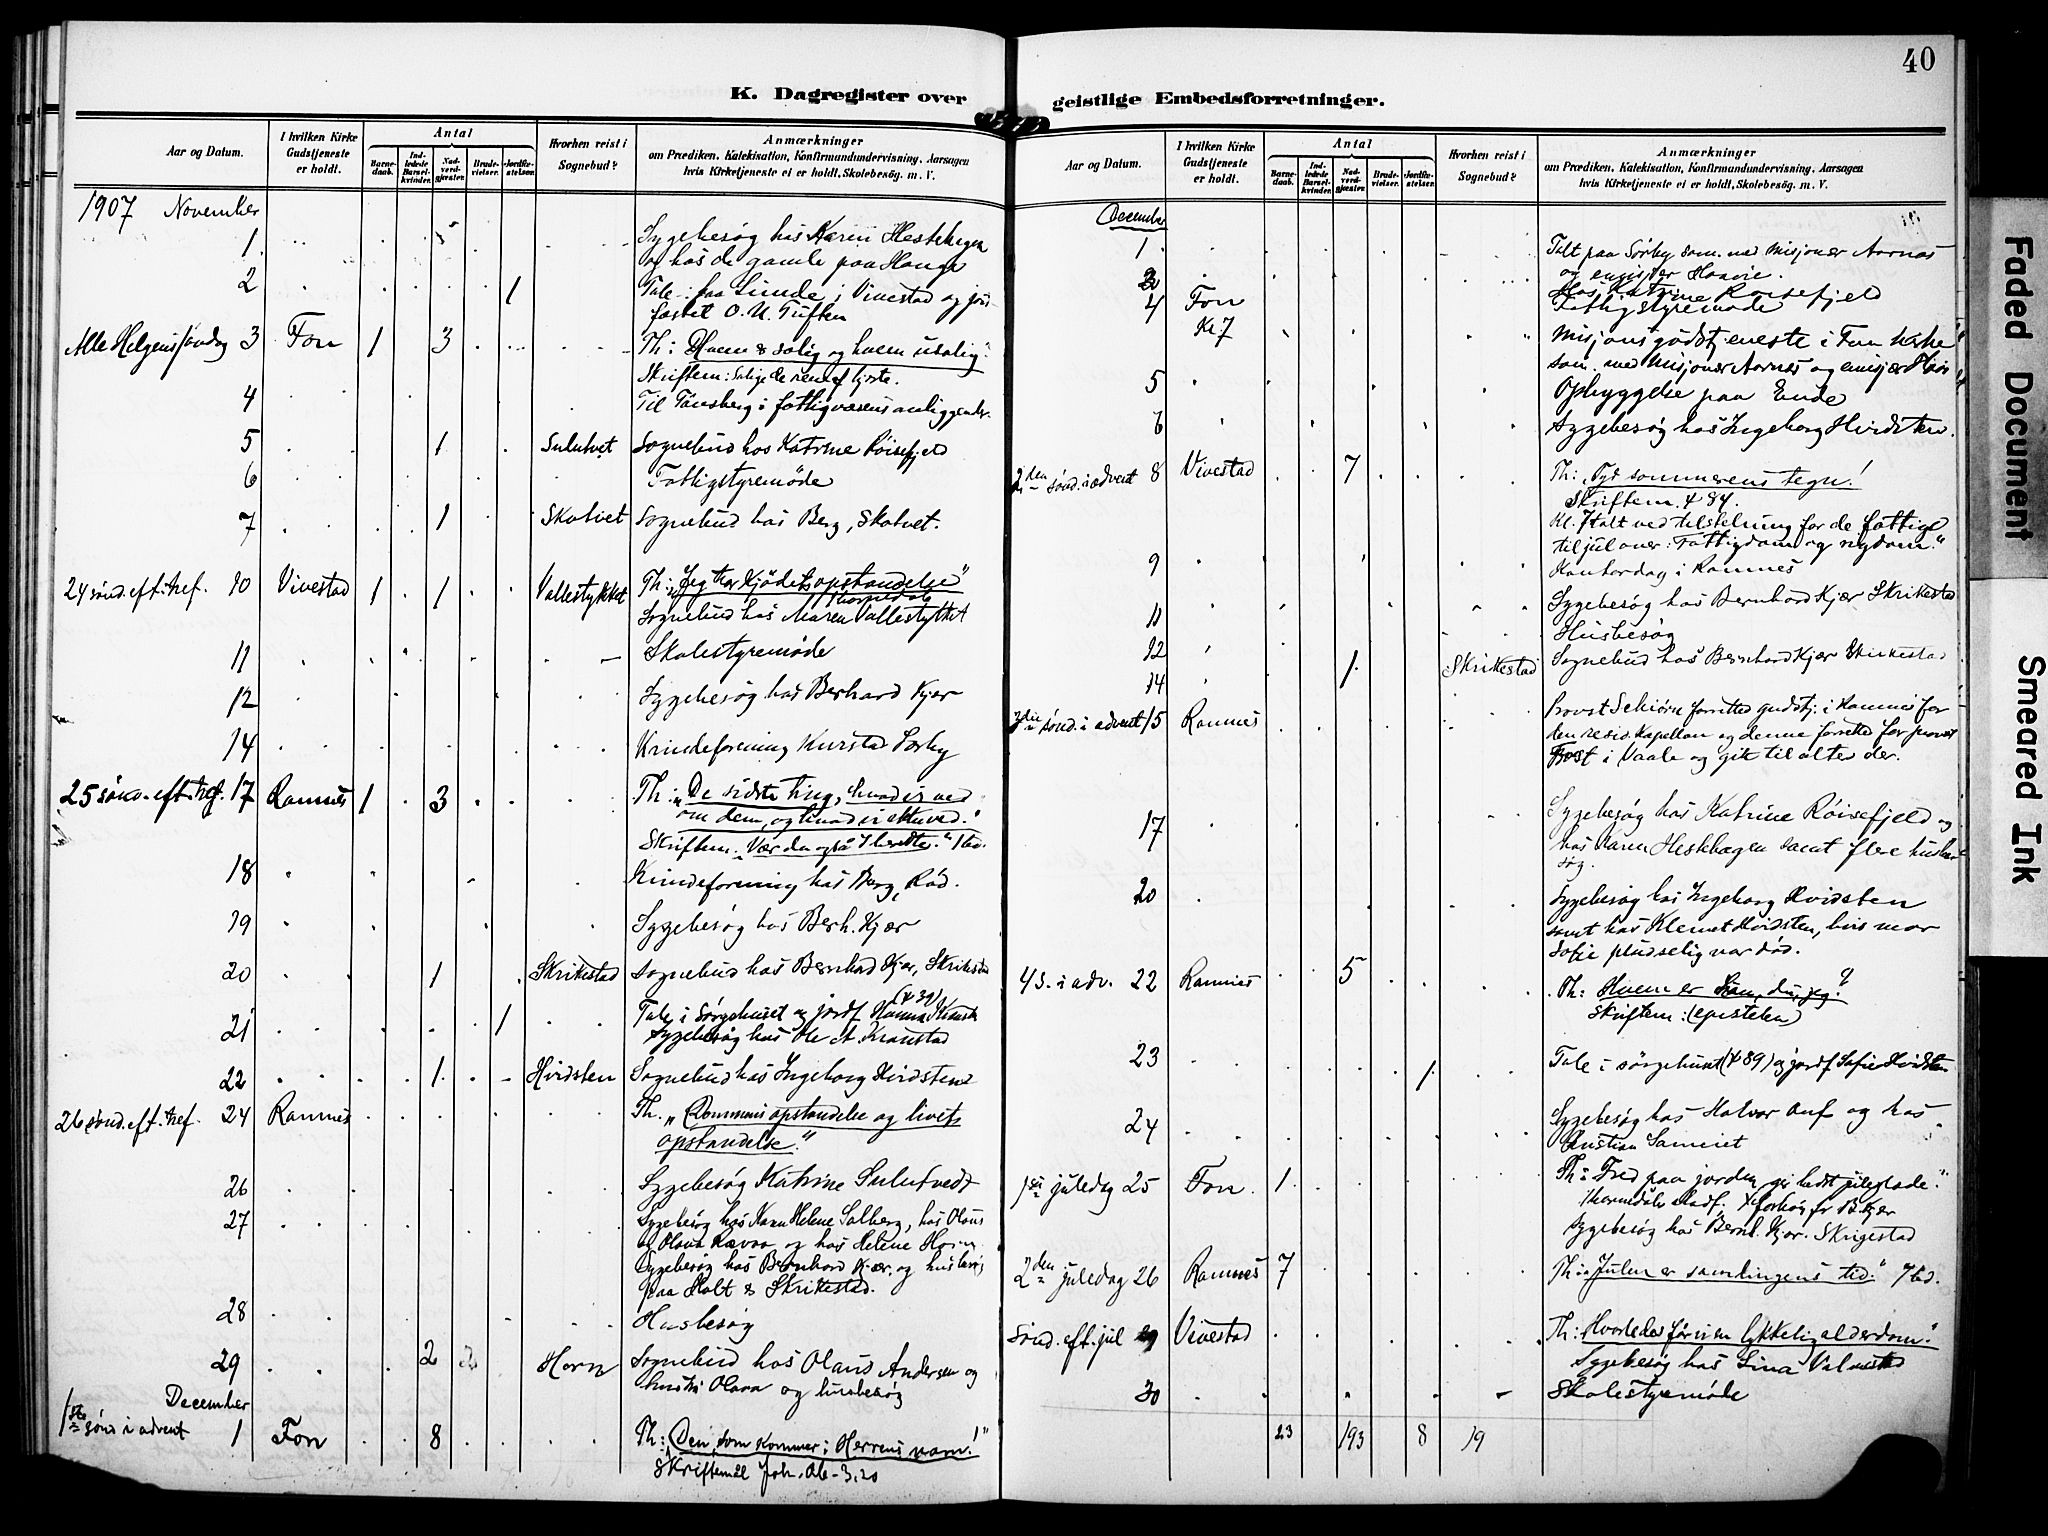 40
K. Dagregister over geistlige Embedsforretninger.
Aar og Datum.
I hvilken Kirke Gudstjeneste er holdt.
Antal
Barnedaab.
Indledede Barselkvinder.
Nadverdgjæster.
Brudevielser.
Jordfæstelser.
Hvorhen reist i Sognebud?
Anmærkninger
om Prædiken, Katekisation, Konfirmandundervisning, Aarsagen
hvis Kirketjeneste ei er holdt, Skolebesøg. m. V.
1907 November
1. Sygebesøg hos Karen Hestehagen
og hos de gamle paa Hauge
2 1 Tale paa Linde i Vivestad og jord
fæstet O. U. Tuften
Alle Helgens søndag 3 Fon 1 3 Th: Hvem er salig og hvem usalig
Skriftem: Salige de rene af hjerte.
4 Til Tönsberg i fattigvæsens anliggender
5 1 Sulutvet Sognebud hos Katrine Röisefjeld
6 Fattigstyremöde
7 1 Skotvet Sognebud hos Berg, Skotvet.
24 sönd. eft. tref. 10 Vivestad 1 1 Vallestykket Th: "Jeg tror kjödets opstandelse"
Sognebud hos Maren Vallestykket
11 Skolestyremöde
12 Sygebesøg hos Berhard Kjær
14 Kvindeforening
25 sönd. eft. tref. 17 Ramnes 1 3 Th: "De sidste ting, hvad vi ved
om dem, og hvad vi ikke ved."
Skriftem. "Vær du også beredte."
18 Kvindeforening hos Berg, Röd.
19 Sygebesøg hos Berh. Kjær
20 1 Skrikestad Sognebud hos Bernhard Kjær, Skrikestad
21 1 Tale i Sørgehuset og jordf. Hanna
Sygebesøg hos Ole A. Kranstad
22 1 Hvidsten Sognebud hos Ingeborg Hvidsten
26 sönd. eft. tref. 24 Ramnes Th. "Dommens opstandelse og livets
opstandelse."
26 Sygebesøg Katrine Sulutvedt
27 Sygebesøg hos Karen Helene Solberg, hos Olaus
og Olava Rævaa og hos Helene Horn
Sygebesøg hos Bernhard Kjær, og husbesøg
paa Holt & Skrikestad.
28 Husbesøg
29 2 2 Horn Sognebud hos Olaus Andersen og
hustru Olava og husbesøg
December
1ste sønd i advent 1 Fon 8 Th: "Den, som kommer i Herrens navn!"
Skriftemål Joh. Åb. 3,20
Aar og Datum.
I hvilken Kirke Gudstjeneste er holdt.
Antal
Barnedaab.
Indledede Barselkvinder.
Nadverdgjæster.
Brudevielser.
Jordfæstelser.
Hvorhen reist i Sognebud?
Anmærkninger
om Prædiken, Katekisation, Konfirmandundervisning, Aarsagen
hvis Kirketjeneste ei er holdt, Skolebesøg. m. V.
December
1 Talt paa Sørby sam. med misjonær Aarnæs
og emisjær
Hos Katrine Röisefjeld
4 Fon Fattigstyremöde
Kl. 7 Misjonsgudstjeneste i Fon kirke
sam. med misjonær Aarnæs og emisjær
5 Opbyggelse paa Ende
6 Sygebesøg hos Ingeborg Hvidsten.
2den sönd. i advent 8 Vivestad 7 Th: "Tyd sommerens tegn!"
Skriftem. ψ 84.
Kl. 7 talt ved tilstelning for de fattige
til jul over: Fattigdom og rigdom."
9 Kontordag i Ramnes
11 Sygebesøg hos Bernhard Kjær Skrikestad
Husbesøg
12 1 Skrikestad Sognebud hos Bernhard Kjær Skrikestad
14
3die sønd. i advent 15 Ramnes Provst Schiørn forrettet gudstj. i Ramnes for
den resid. kapellan og denne forrettet for provst
Frost i Vaale og gik til alters der.
17 Sygebesøg hos Katrine Röisefjeld og
hos Karen Hestehagen samt flere husbe
søg.
20 Sygebesøg hos Ingeborg Hvidsten
samt hos Klemet Hvidsten, hvis mor
Sofie pludselig var död.
4 S. i adv. 22 Ramnes 5 Th: Hvem er du, jeg?
Skriftem: (epistelen)
23 1 Tale i sørgehuset (ψ 89) og jordf Sofie Hvidsten
24 Sygebesøg hos Halvor Auf og hos
Kristian
1ste juledag 25 Fon 1 Th: "Fred paa jorden gir bedst juleglæde."
Sygebesøg hos Bernh. Kjær. Skrigestad
2den juledag 26 Ramnes 7 Th: "Julen er samlingens tid."
Sönd. eft. jul 29 Vivestad Th: Hvorledes får vi en lykkelig alderdom."
Sygebesøg hos Lina
30 Skolestyremøde
23 193 8 19
Faded Document
Smeared Ink